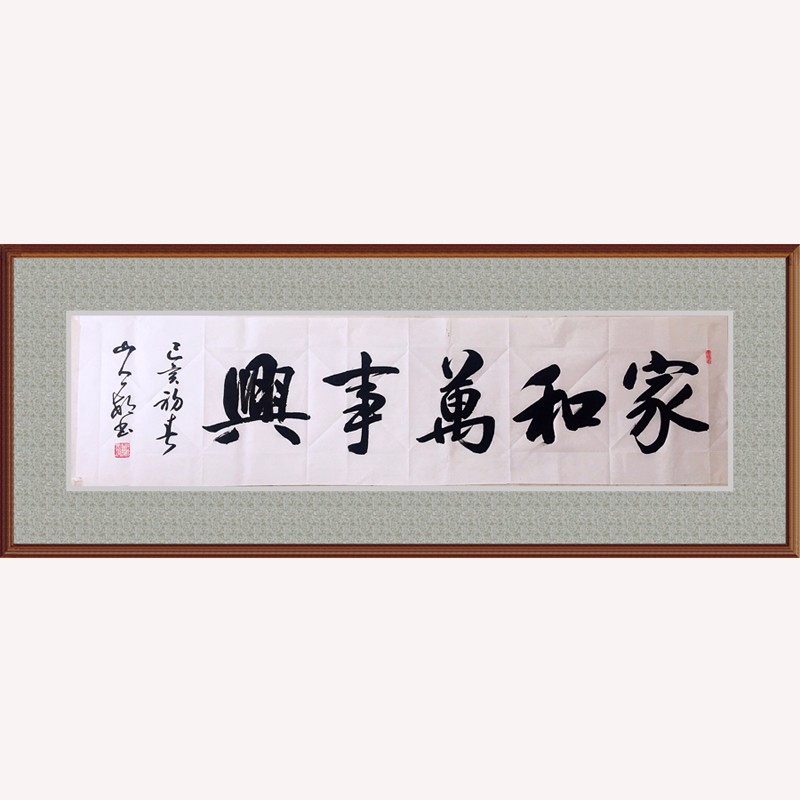 家和萬事興
己亥初春